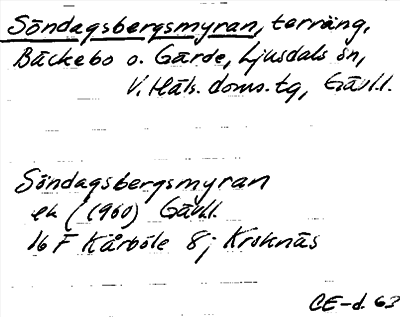 Söndagsbergsmyran, terräng,
Bäckebo o. Gärde, Ljusdals sn,
V. Häls. doms. tg, Gävl.l.
Söndagsbergsmyran
ek (1960) Gävl.l.
16 F Kårböle 8; Kroknäs
CE-d. 63